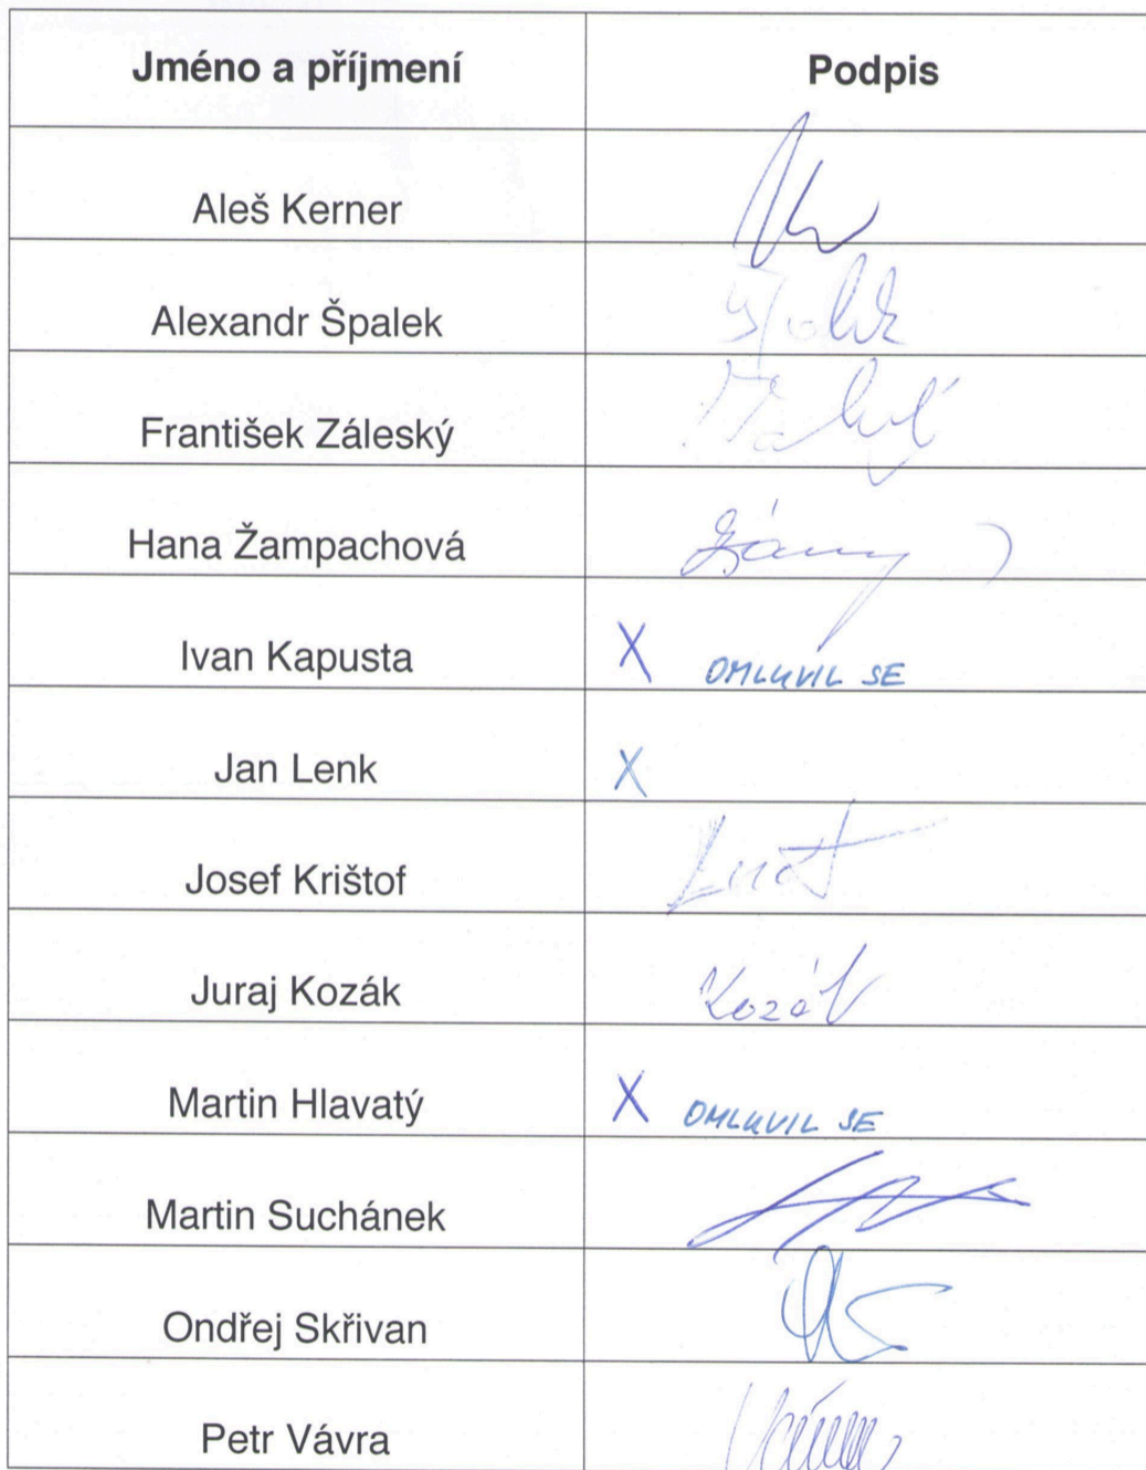 Jméno a příjmení Podpis
Aleš Kerner
Alexandr Špalek
František Záleský
Hana Žampachová
Ivan Kapusta X OMLUVIL SE
Jan Lenk X
Josef Krištof
Juraj Kozák Kozák
Martin Hlavatý X OMLUVIL SE
Martin Suchánek
Ondřej Skřivan
Petr Vávra